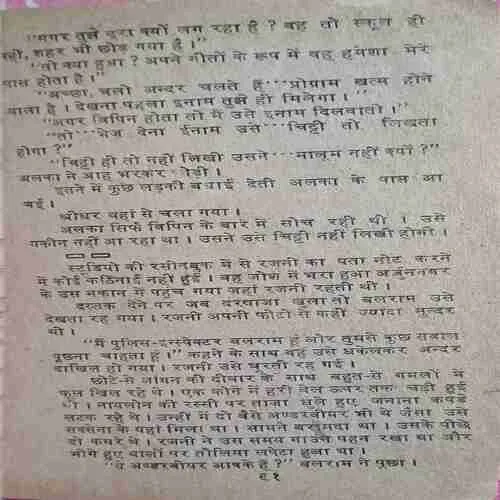 "मगर तुझे बुरा क्यों लग रहा है ? वह तो स्कूल ही
नहीं, शहर भी छोड़ गया है ।"
"तो क्या हुआ ? अपने गीतों के रूप में वह हमेशा मेरे
पास होता है ।"
"अच्छा, चलो अन्दर चलते हैं···प्रोग्राम खत्म होने
वाला है । देखना पहला इनाम तुझे ही मिलेगा ।"
"अगर विपिन होता तो मैं उसे इनाम दिलवाती ।"
"तो···भेज देना ईनाम उसे···चिट्ठी तो लिखता
होगा ?"
"चिट्ठी ही तो नहीं लिखी उसने···मालूम नहीं क्यों ?"
अलका ने आह भरकर
इतने में कुछ लड़की बधाई देती अलका के पास आ
गईं ।
श्रीधर वहां से चला गया ।
अलका सिर्फ विपिन के बारे में सोच रही थी । उसे
यकीन नहीं आ रहा था । उसने उसे चिट्ठी नहीं लिखी होगी ।
स्टूडियो की रसीदबुक में से रजनी का पता नोट करने
में कोई कठिनाई नहीं हुई । वह जोश में भरा हुआ अर्जुननगर
के उस मकान में पहुंच गया जहां रजनी रहती थी ।
दस्तक देने पर जब दरवाजा खुला तो बलराम उसे
देखता रह गया । रजनी अपनी फोटो से कहीं ज्यादा सुन्दर
थी ।
"मैं पुलिस-इन्स्पेक्टर बलराम हूं और तुमसे कुछ सवाल
पूछना चाहता हूं ।" कहने के साथ वह उसे धकेलकर अन्दर
दाखिल हो गया । रजनी उसे घूरती रह गई ।
छोटे-से आंगन की दीवार के साथ बहुत-से गमलों में
फूल खिल रहे थे । एक कोने में हरी बेल ऊपर तक चढ़ी हुई
थी । नायलोन की रस्सी पर ताजा धुले हुए जनाना कपड़े
लटक रहे थे । उन्हीं में दो वैसे अण्डरवीयर भी थे जैसा उसे
सक्सेना के यहां मिला था । सामने बरामदा था । उसके पीछे
दो कमरे थे । रजनी ने उस समय गाउन पहन रखा था और
भीगे हुए बालों पर तौलिया लपेटा हुआ था ।
"ये अण्डरवीयर आपके हैं ?" बलराम ने पूछा ।
६१